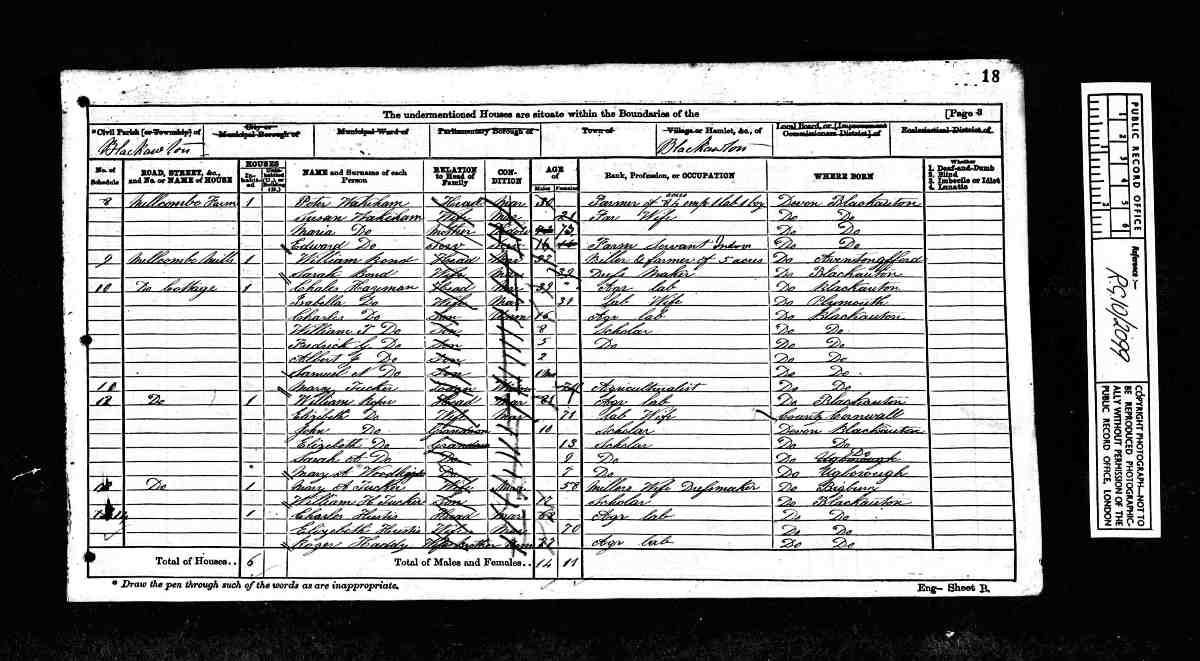 18
The undermentioned Houses are situate within the Boundaries of the [Page 3
*Civil Parish [or Township] of City or Municipal Borough of Municipal Ward of Parliamentary Borough of Town of Village or Hamlet, &c., of Local Board, or [Improvement Commissioners District] of Ecclesiastical District of
Blackawton Blackawton
No. of Schedule ROAD, STREET, &c., and No. or NAME of HOUSE HOUSES Inhabited Uninhabited (U.), or Building (B.) NAME and Surname of each Person RELATION to Head of Family CONDITION AGE of Males Females Rank, Profession, or OCCUPATION WHERE BORN Whether 1. Deaf-and-Dumb 2. Blind 3. Imbecile or Idiot 4. Lunatic
8 Millcombe Farm 1 Peter Wakeham Head Mar Farmer of acres emp 1 lab 1 boy Devon Blackauton
Susan Wakeham Wife Mar Far Wife Do Do
Maria Do Mother 73 Do Do
Edward Do Serv 16 Farm Servant Indoor Do Do
9 Millcombe Mill 1 William Bond Head Mar Miller & farmer of 5 acres Do
Sarah Bond Wife Mar 32 Dress Maker Do Blackauton
10 Do Cottage 1 Head Mar 39 Agr lab Do Blackauton
Isabella Do Wife Mar 31 Lab Wife Do Plymouth
Charles Do Son 16 Agr lab Do Blackauton
William T Do Son 8 Scholar Do Do
Fredrick Do Son 5 Do Do Do
Albert J Do Son 2 Do Do
Samuel N Do Son Do Do
Mary Tucker Agriculturalist Do Do
12 Do 1 William Head Mar Agr lab Do Blackauton
Elizabeth Do Wife Mar 71 Lab Wife County Cornwall
John Do Grandson 10 Scholar Devon Blackauton
Elizabeth Do 13 Scholar Do Do
Sarah A Do Do 9 Do Do
Mary A Do 7 Do Do Ugborough
Do 1 Mary A Tucker Wife Mar 58 Millers Wife Dressmaker Do Bigbury
William H Tucker Son 12 Scholar Do Blackauton
1 Charles Head Mar 62 Agr lab Do Do
Elizabeth Wife Mar 70 Do Do
Roger Agr lab Do Do
Total of Houses.. 6 Total of Males and Females.. 14 11
* Draw the pen through such of the words as are inappropriate. Eng- Sheet B.
PUBLIC RECORD OFFICE
1 2 3 4 5 6
Reference :-
RG10/2099
COPYRIGHT PHOTOGRAPH-NOT TO
BE REPRODUCED PHOTOGRAPHIC-
ALLY WITHOUT PERMISSION OF THE
PUBLIC RECORD OFFICE, LONDON